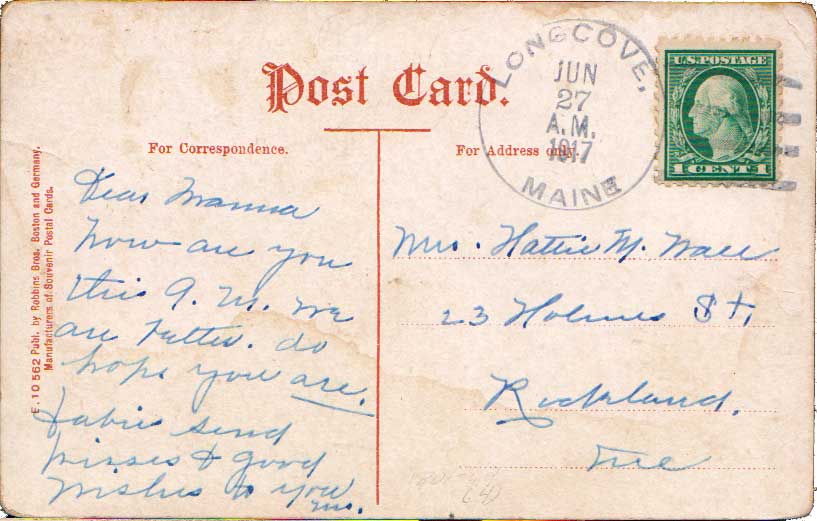 Post Card.
For Correspondence.
For Address only.
LONGCOVE,
JUN
27
A.M.
1917
MAINE
U.S. POSTAGE
1 CENT 1
E. 10 562 Publ. by Robbins Bros. Boston and Germany.
Manufacturers of Souvenir Postal Cards.
Dear Mamma
how are you
this A. M. we
are better. do
hope you are.
babies send
kisses & good
wishes to you
Mrs. Hattie M. Wall
23 Holmes St,
Rockland.
Me